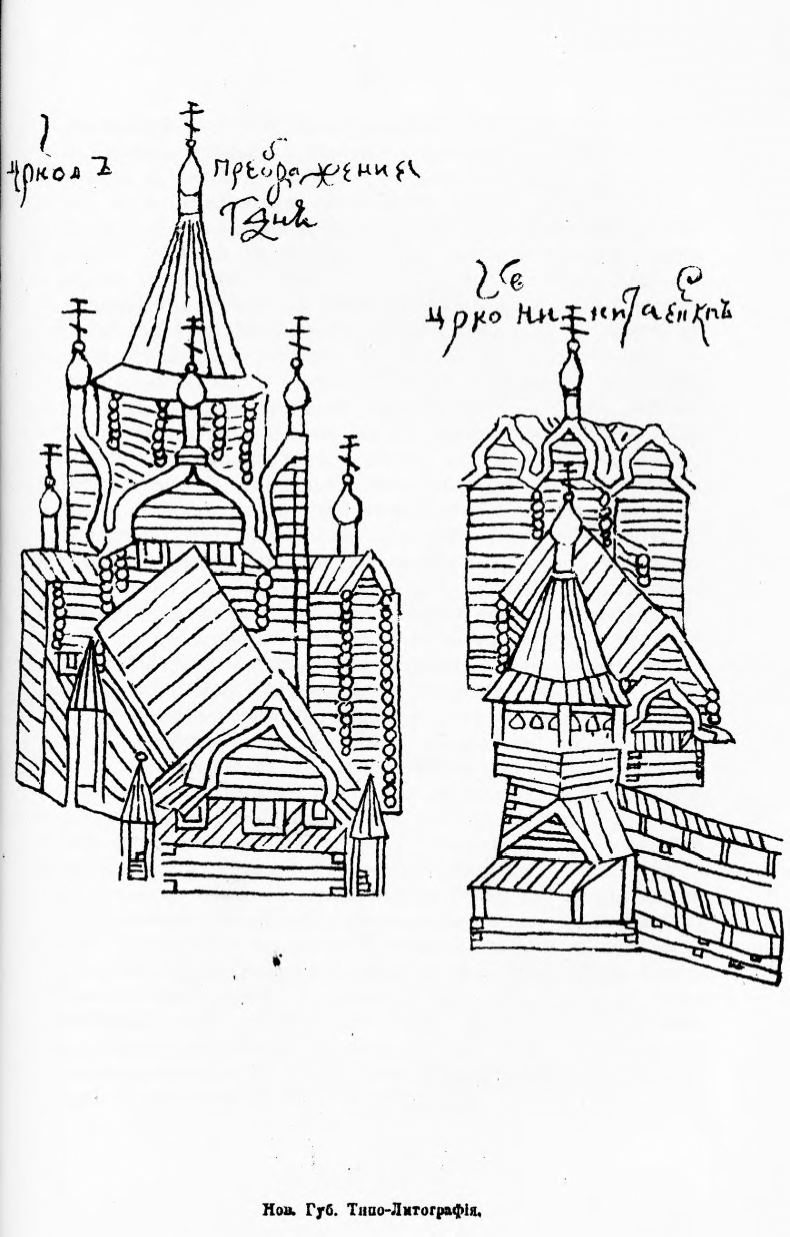 црковъ преображения
Гднѣ
црко никиты епкпъ
Нов. Губ. Типо-Литографія.